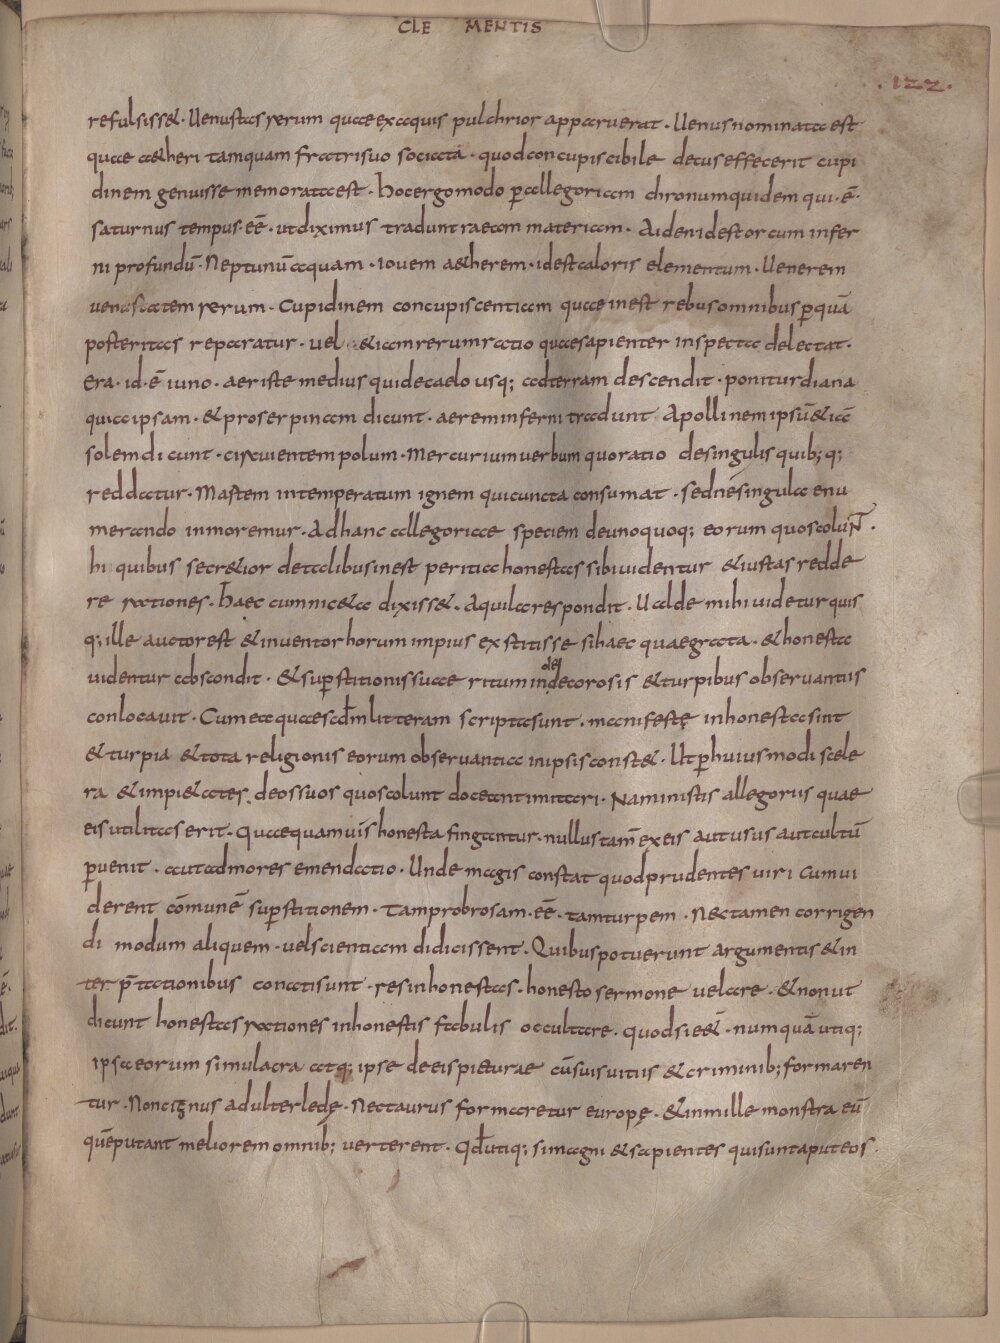 CLE MENTIS
.122.
refulsiss&. Uenustas rerum quae ex aquis pulchrior apparuerat. Uenus nominata est
quae a&heri tamquam fratri suo sociata. quod concupiscibile decus effecerit cupi
dinem genuisse memorata est. hoc ergo modo ꝑ allegoriam chronum quidem qui.ē.
saturnus tempus.eē. ut diximus tradunt raeam materiam. Aiden id est orcum infer
ni profundū. Neptunū aquam. iouem a&herem. id est caloris elementum. Uenerem
uenustatem rerum. Cupidinem concupiscentiam quae inest rebus omnibus ꝑ quā
posteritas reparatur. uel &iam rerum ratio quae sapienter inspecta delectat.
Era. id.ē iuno. aer iste medius qui de caelo usq; ad terram descendit. ponitur diana
quia ipsam. & proserpinam dicunt. aerem inferni tradunt Apollinem ipsū &iā
solem dicunt. circuientem polum. Mercurium uerbum quo ratio de singulis quib;q;
reddatur. Mastem intemperatum ignem qui cuncta consumat. sed nē singula enu
merando inmoremur. Ad hanc allegoricae speciem de uno quoq; eorum quos coluNT.
hi quibus secr&ior de talibus inest peritia honestas sibi uidentur & iustas redde
re rationes. haec cum nic&a dixiss&. Aquila respondit. Ualde mihi uidetur quis
q; ille auctor est & inuentor horum impius exstitisse si haec quae grata. & honesta
uidentur abscondit. & suꝑstitionis suae ritum in del decorosis & turpibus obseruantiis
conlocauit. Cum ea quae scdm litteram scripta sunt. manifestę inhonesta sint
& turpia & tota religionis eorum obseruantia in ipsis const&. Ut ꝑ huiusmodi scele
ra & impi&ates deos suos quos colunt doceant imitari. Nam in istis allegoriis quae
eis utilitas erit. Quae quamuis honesta fingantur. nullus tam̄ ex eis aut usus aut cultū
ꝑuenit. aut ad mores emendatio. Unde magis constat quod prudentes uiri cum ui
derent cōmunē suꝑstitionem. tam probrosam.eē. tam turpem. Nec tamen corrigen
di modum aliquem. uel scientiam didicissent. Quibus potuerunt argumentis & in
ter p̄tationibus conati sunt. res inhonestas. honesto sermone uelare. & non ut
dicunt honestas rationes inhonestis fabulis occultare. quod si eē. numquā utiq;
ipsa eorum simulacra atq; ipse de eis picturae cū suis uitiis & criminib; formaren
tur. Non cignus adulter ledę. Nec taurus formaretur europę. & in mille monstra eū
quē putant meliorem omnib; uerterent. Qd utiq; si magni & sapientes qui sunt aput eos